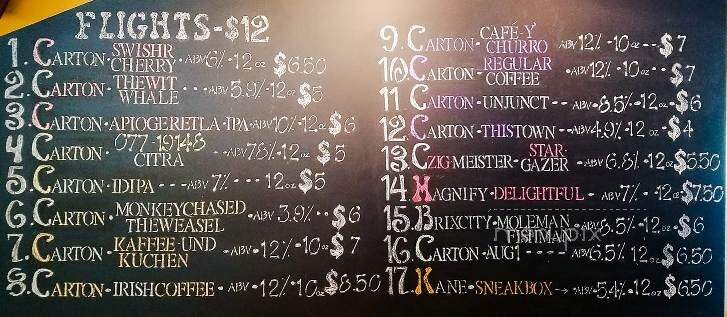 FLIGHTS-$12
1. CARTON - SWISHR CHERRY - ABV 6% - 12oz $6.50
2. CARTON - THE WIT WHALE - - - ABV 5.9% - 12oz $5
3. CARTON - APIOGERETLA - IPA - ABV 10% - 12oz $6
4. CARTON - 077-19148 CITRA - - ABV 7.8% - 12oz $5
5. CARTON - IDIPA - - - ABV 7% - - - 12oz $5
6. CARTON - MONKEY CHASED THE WEASEL - ABV 3.9% - - $6
7. CARTON - KAFFEE UND KUCHEN - ABV - 12% - 10oz $7
8. CARTON - IRISH COFFEE - ABV - 12% - 10oz $8.50
9. CARTON - CAFÉ-Y CHURRO ABV 12% - 10oz - - $7
10. CARTON - REGULAR COFFEE - ABV 12% - 10oz - - $7
11 CARTON - UNJUNCT - - ABV - 8.5% - 12oz - $6
12. CARTON - THIS TOWN - - ABV 4.9% - 12oz - $4
13. CZIG-MEISTER - STAR-GAZER - ABV 6.8% - 12oz $5.50
14. MAGNIFY - DELIGHTFUL - ABV 7% - - 12oz $7.50
15. BRIXCITY - MOLEMAN FISHMAN - ABV 8.5% - 12oz - $6
16. CARTON - AUG1 - - - - ABV 6.5% 12oz $6.50
17. KANE - SNEAKBOX → ABV - 5.4% - 12oz $6.50